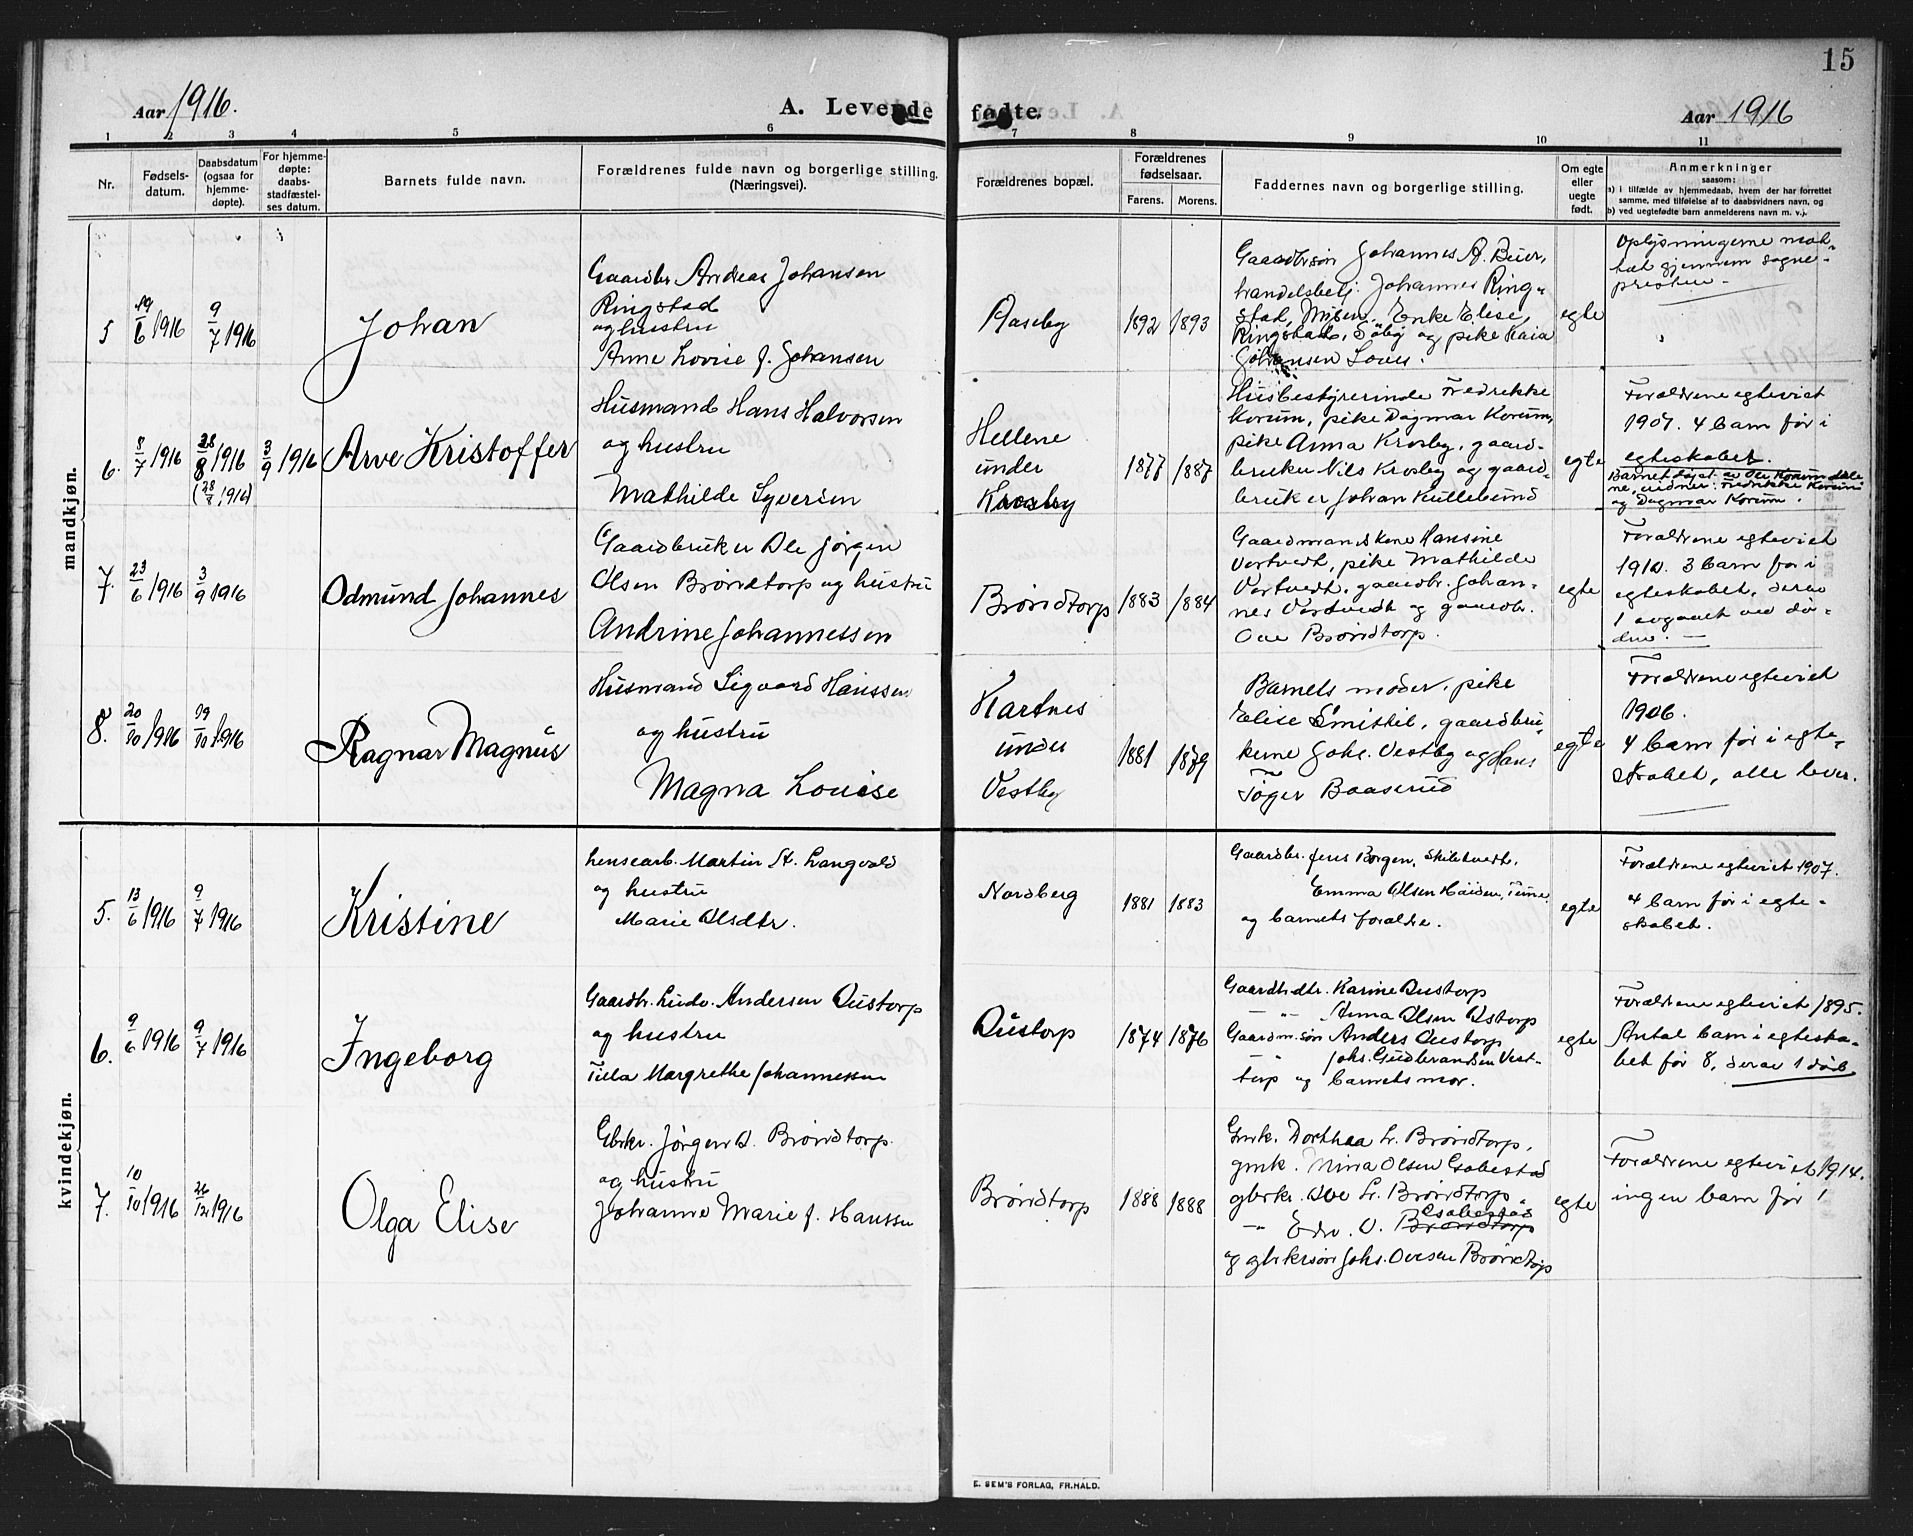 15
Aar 1916.
A. Levende fødte.
Aar 1916
1 2 3 4 5 6 7 8 9 10 11
Nr.
Fødsels-
datum.
Daabsdatum
(ogsaa for
hjemme-
døpte).
For hjemme-
døpte:
daabs-
stadfæstel-
ses datum.
Barnets fulde navn.
Forældrenes fulde navn og borgerlige stilling.
(Næringsvei).
Forældrenes bopæl.
Forældrenes
fødselsaar.
Farens. Morens.
Faddernes navn og borgerlige stilling.
Om egte
eller
uegte
født.
Anmerkninger
saasom:
a) i tilfælde av hjemmedaab, hvem der har forrettet
samme, med tilføielse af to daabsvidners navn, og
b) ved uegtefødte barn anmelderens navn m. v.).
mandkjøn.
5
19/6 1916
9/7 1916
Johan
Gaardbr Andreas Johansen
Ringstad
og hustru
Anne Lovise f. Johansen
Aaseby
1892 1893
Gaardbrsøn Johannes A. Buer,
handelsbetj. Johannes Ring-
stad, Mysen, Enke Elise
Ringstad, Söby og pike Kaia
Johansen
egte
Oplysningerne mot-
tat gjennem sogne-
presten -
6.
8/7 1916
28/8 1916
1916)
3/9 1916
Arve Kristoffer
Husmand Hans Halvorsen
og hustru
Mathilde Syversen
Hellene
under
Krosby
1877 1887
Husbestyrerinde Fredrikke
Korum, pike Dagmar Korum,
pike Anna Krosby, gaard-
bruker Nils Krosby og gaard-
bruker Johan Kullebund
egte
Forældrene egteviet
1907. 4 barn før i
egteskabet.
Barnet døpt av
Fredrikke Korum
og Dagmar Korum.
7.
23/6 1916
3/9 1916
Odmund Johannes
Gaardbruker Ole Jørgen
Olsen Brøndtorp og hustru
Andrine Johannessen
Brøndtorp
1883 1884
Gaardmandskone Hansine
Vortvedt, pike Mathilde
Vortvedt, gaardbr. Johan-
nes Vortvedt og gaardbr.
Ove Brøndtorp.
egte
Forældrene egteviet
1910. 3 barn før i
egteskabet, derav
1 avgaaet ved dø-
den. —
8.
20/10 1916
19/10 1916
Ragnar Magnus
Husmand Sigvard Hanssen
og hustru
Magna Louise
Kartnes
under
Vestby
1881 1879
Barnets moder, pike
Elise Smistil, gaardbru-
kerne Johs. Vestby og Hans
Tøger Baaserud
egte
Forældrene egteviet
1906.
4 barn før i egte-
skabet, alle lever.
kvindekjøn.
5.
13/6 1916
9/7 1916
Kristine
Lensearb. Martin St. Langvold
og hustru
Marie Olsdtr.
Nordberg
1881 1883
Gaardbr. Jens Borgen, Skiletvedt,
Emma Olsen
og barnets forældre.
egte
Forældrene egteviet 1907.
4 barn før i egte-
skabet.
6.
9/6 1916
9/7 1916
Ingeborg
Gaardbr. Ludv. Andersen Oustorp
og hustru
Tilla Margrethe Johannessen
Oustorp
1874 1876
Gaardbrdtr. Karine Oustorp
— " — Anna Olsen Ostorp
Gaardm. søn Anders Oustorp
— " Johs. Gudbrandsen Vest-
torp og barnets mor.
egte
Forældrene egteviet 1895.
Antal barn i egteska-
bet før 8, derav 1 død
7.
10/10 1916
26/12 1916
Olga Elise
Gbrkr. Jørgen O. Brøndtorp
og hustru
Johanne Marie f. Hanssen
Brøndtorp
1888 1888
Gmk. Dorthea L. Brøndtorp,
gmk. Nina Olsen Gsobestad
gbrkr. Ove L. Brøndtorp
Gsobestad
— " — Edv. O. Brøndtorp
og gbrkrsøn Johs. Ovesen Brøndtorp
egte
Forældrene egteviet 1914.
ingen barn før !
E. SEM'S FORLAG, FR.HALD.